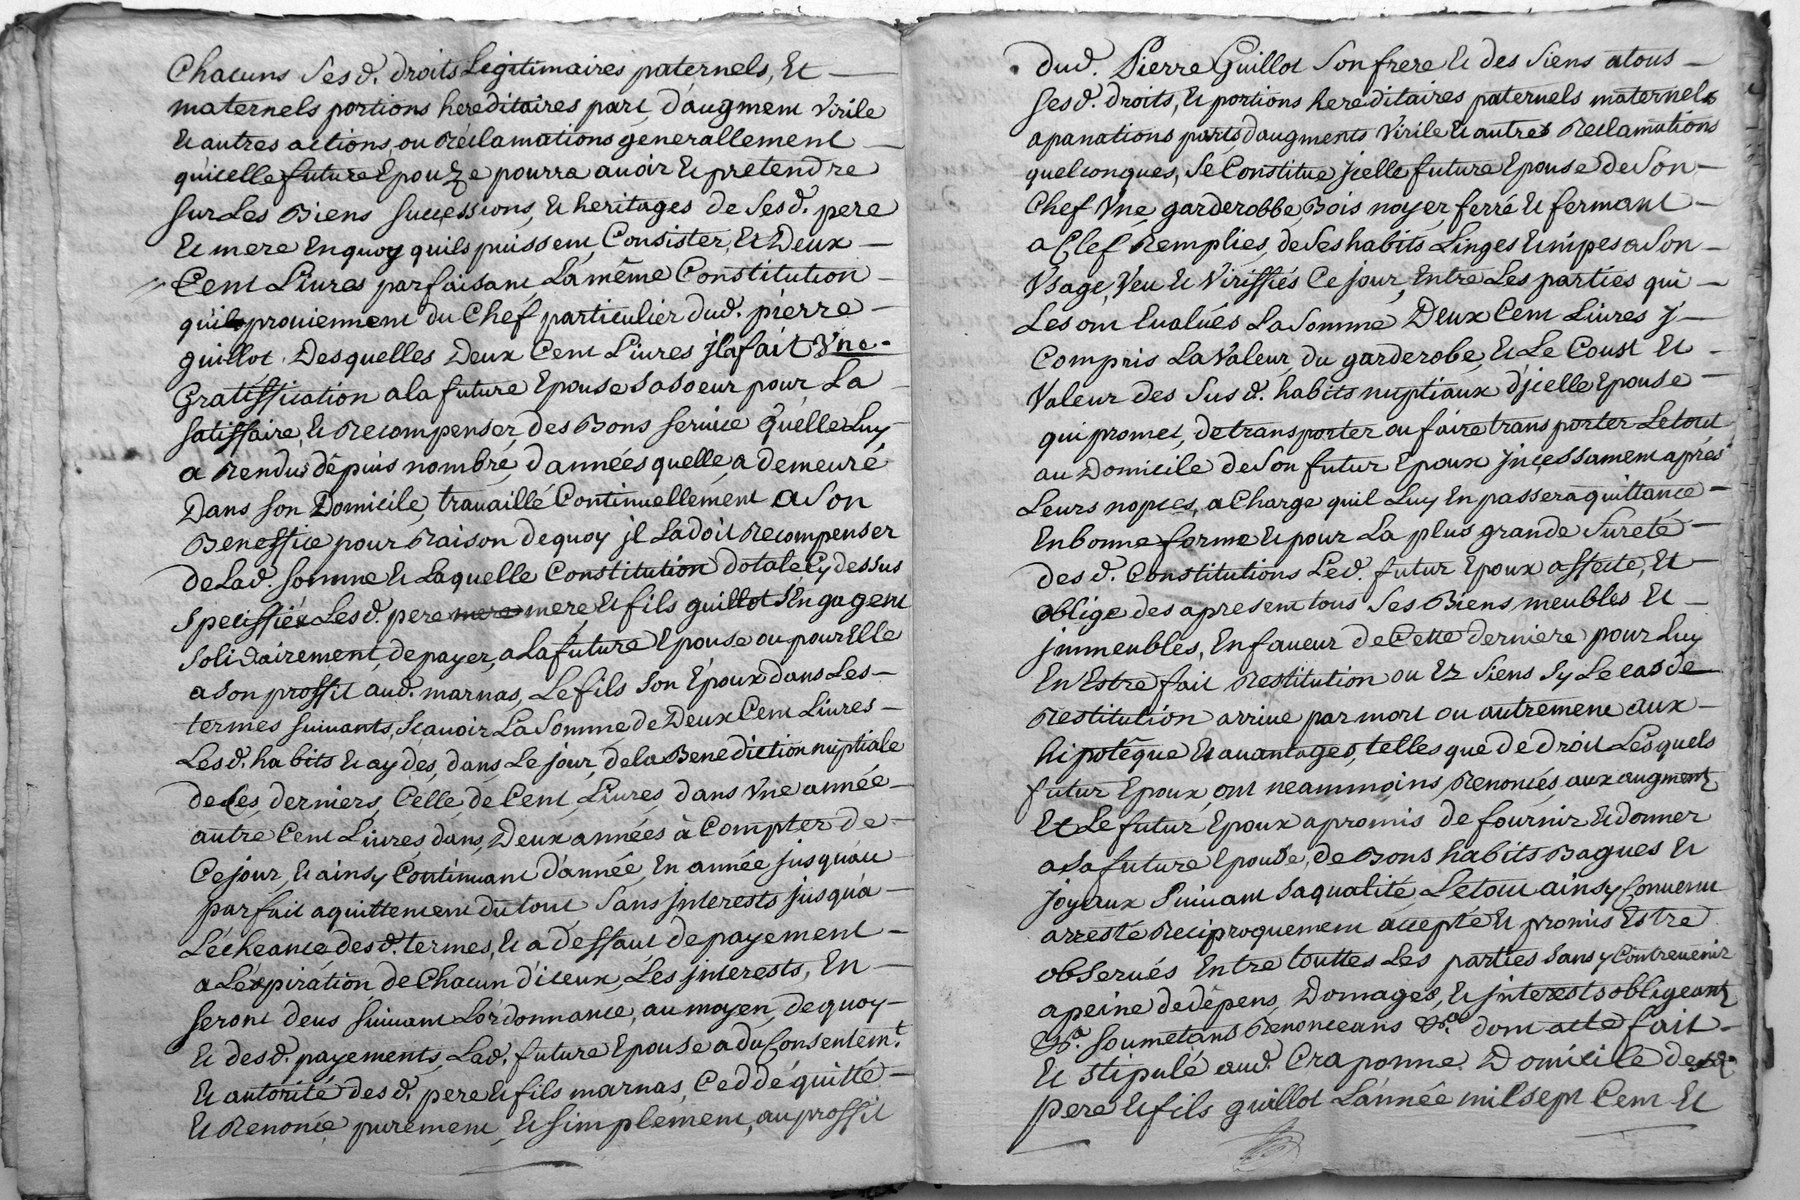 Chacuns Sesd. droits Legitimaires paternels, Et
maternels portions hereditaires part d'augment Virile
Et autres actions, ou Réclamations generallement
qu'icelle future Epouze pourra avoir Et pretendre
Sur Les Biens Successions, Et heritages de Sesd. pere
Et mere En quoy quils puissent Consister, Et Deux
Cent Livres parfaisant La même Constitution
quils proviennent du Chef particulier dud. pierre
guillot. Desquelles Deux Cent Livres jl a fait Vne
Gratiffication a la future Epouse sa soeur pour La
satisffaire, Et Recompenser, des Bons service quelle Luy
a Rendus dépuis nombré d'années quelle a demeuré
Dans son Domicile, travaillé Continuellement a Son
Beneffice pour Raison de quoy jl La doit Recompenser
de Lad. Somme Et Laquelle Constitution dotale Cy dessus
Speciffiéé Lesd. pere mere mere, Et fils guillot S'Engagent
Solidairement, de payer, a La future Epouse ou pour Elle
a son proffit aud. marnas, Le fils Son Époux dans Les
termes suivants, Scavoir La Somme de Deux Cent Livres
Lesd. habits Et aydes, dans Le jour, de la Benediction nuptiale
de Ces derniers, Celle de Cent Livres dans Vne année
autre Cent Livres dans Deux années à Compter de
Ce jour, Et ainsy Continuant d'année En année jusquau
parfait aquittement du tout Sans jnterests jusqu'a
L'écheance desd. termes, Et a deffaut de payement
a L'éxpiration de Chacun d'iceux, Les jnterests, En
Seront deus Suivant L'ordonnance, au moyen, de quoy
Et desd. payements, Lad. future Epouse a du Consentem.t
Et autorité desd. pere Et fils marnas, Ceddé quitté
Et Renoncé purement, Et Simplement, au proffit
dud. Pierre Guillot Son frere Et des Siens a tous
Sesd. droits, Et portions hereditaires paternels maternels
apanations parts d'augments Virile Et autres Reclamations
quelconques, Se Constitue jcelle future Epouse de Son
Chef Vne garderobbe, Bois noyer, ferré Et fermant
a Clef Remplies, de Ses habits Linges Et nipes a Son
Vsage, Veu Et Viriffiés Ce jour, Entre Les parties qui
Les ont Evalués La Somme Deux Cent Livres y
Compris La Valeur, du garderobe, Et Le Coust Et
Valeur des Susd. habits nuptiaux d'jcelle Epouse
qui promet, de transporter ou faire transporter Le tout
au Domicile de Son futur Epoux jncessament aprés
Leurs nopces, a Charge quil Luy En passera quittance
En bonne forme Et pour La plus grande Sureté
desd. Constitutions Led. futur Epoux affecte, Et
oblige des a present tous Ses Biens, meubles Et
jmmeubles, En faveur de Cette derniere pour Luy
En Estre fait Restitution ou Ez Siens Sy Le cas de
Restitution arrive par mort ou autrement aux
hipotéque Et avantages, telles que de droit Lesquels
futur Epoux, ont neammoins, Renoncés, aux augment
Et Le futur Epoux a promis de fournir Et donner
a La future Epouse, de Bons habits Bagues Et
joyaux Suivant Sa qualité, Le tout ainsy Convenu
arresté Reciproquement accepté Et promis Estre
observés Entre touttes Les parties Sans y Contrevenir
a peine de dépens, Domages, Et jnterests obligeant
&a. Soumetans Renonceans &a. dont acte fait
Et stipulé aud. Craponne Domicile desd.
pere Et fils guillot L'année mil Sept Cent Et